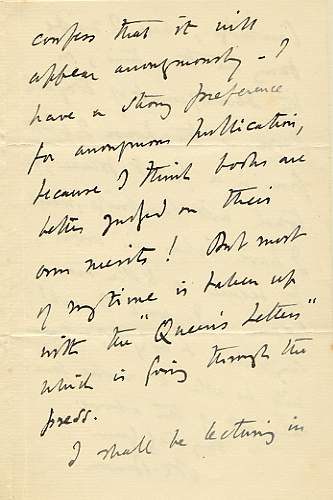 confess that it will
appear anonymously – I
have a strong preference
for anonymous publication,
because I think books are
better judged on their
own merits! But most
of my time is taken up
with the "Queen's Letters"
which is going through the
press.
I shall be lecturing in